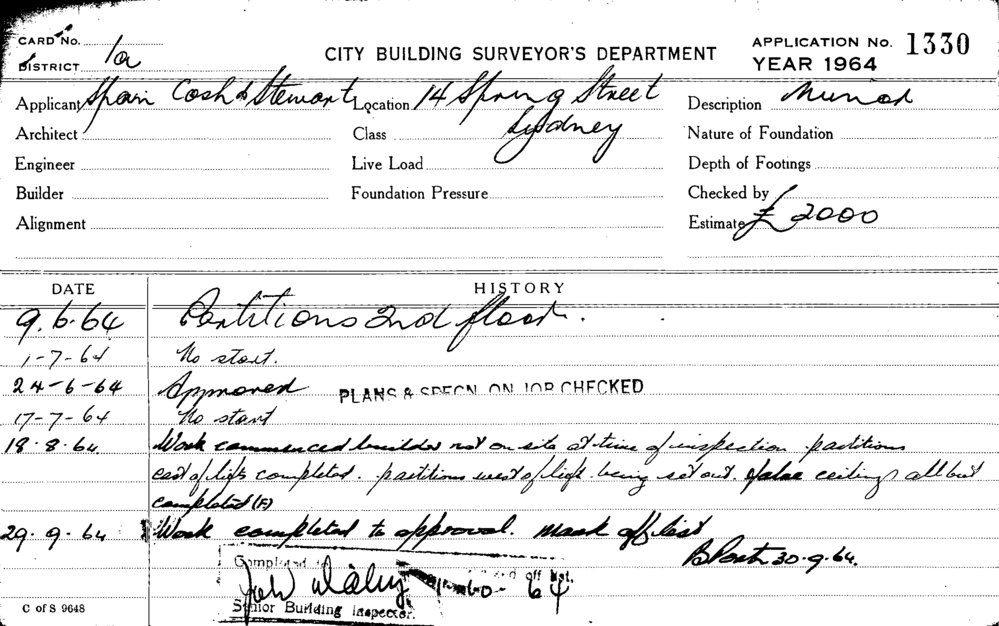 CARD No.
DISTRICT 1a
CITY BUILDING SURVEYOR'S DEPARTMENT
APPLICATION No. 1330
YEAR 1964
Applicant Spain Cosh & Stewart Location 14 Spring Street Description
Architect Class Sydney Nature of Foundation
Engineer Live Load Depth of Footings
Builder Foundation Pressure Checked by
Alignment Estimate £ 2000
DATE HISTORY
9.6.64 Partitions 2nd floor.
1-7-64 No start.
24-6-64 Approved PLANS & SPECN. ON JOB CHECKED
17-7-64 No start
18.8.64. Work commenced builder not on site at time of inspection partitions
east of lift completed. partitions west of lift being set out. false ceilings all but
completed (F)
29.9.64 Work completed to approval. mark off list
30-9-64.
Completed off list.
64
Senior Building Inspector.
C of S 9648